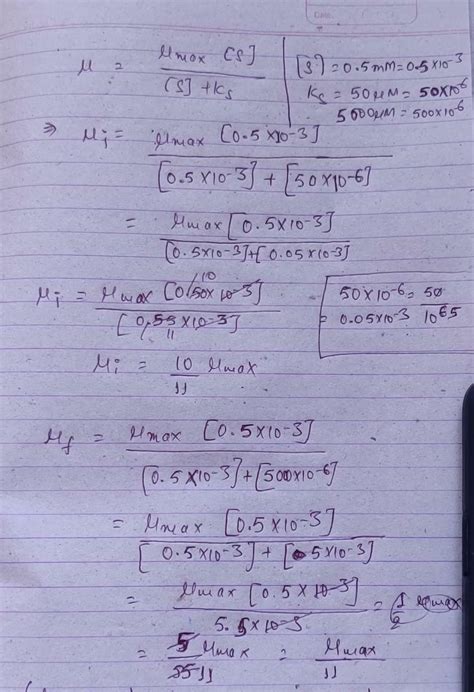 Date
μ = μmax [S] / [S] + Ks
[S] = 0.5 mM = 0.5×10⁻³
Ks = 50 μM = 50×10⁻⁶
5000μM = 500×10⁻⁶
⇒ μi = μmax [0.5×10-3] / [0.5×10-3] + [50×10-6]
= μmax [0.5×10-3] / [0.5×10-3] + [0.05×10-3]
μi = μmax [0.50×10-3] 10 / [0.55×10-3] 11
50×10-6 = 50
= 0.05×10-3
μi = 10/11 μmax
μf = μmax [0.5×10-3] / [0.5×10-3] + [500×10-6]
= μmax [0.5×10-3] / [0.5×10-3] + [5×10-3]
= μmax [0.5×10-3] / 5.5×10-3 = 1/2 μmax
= 5/55 11 μmax = μmax/11